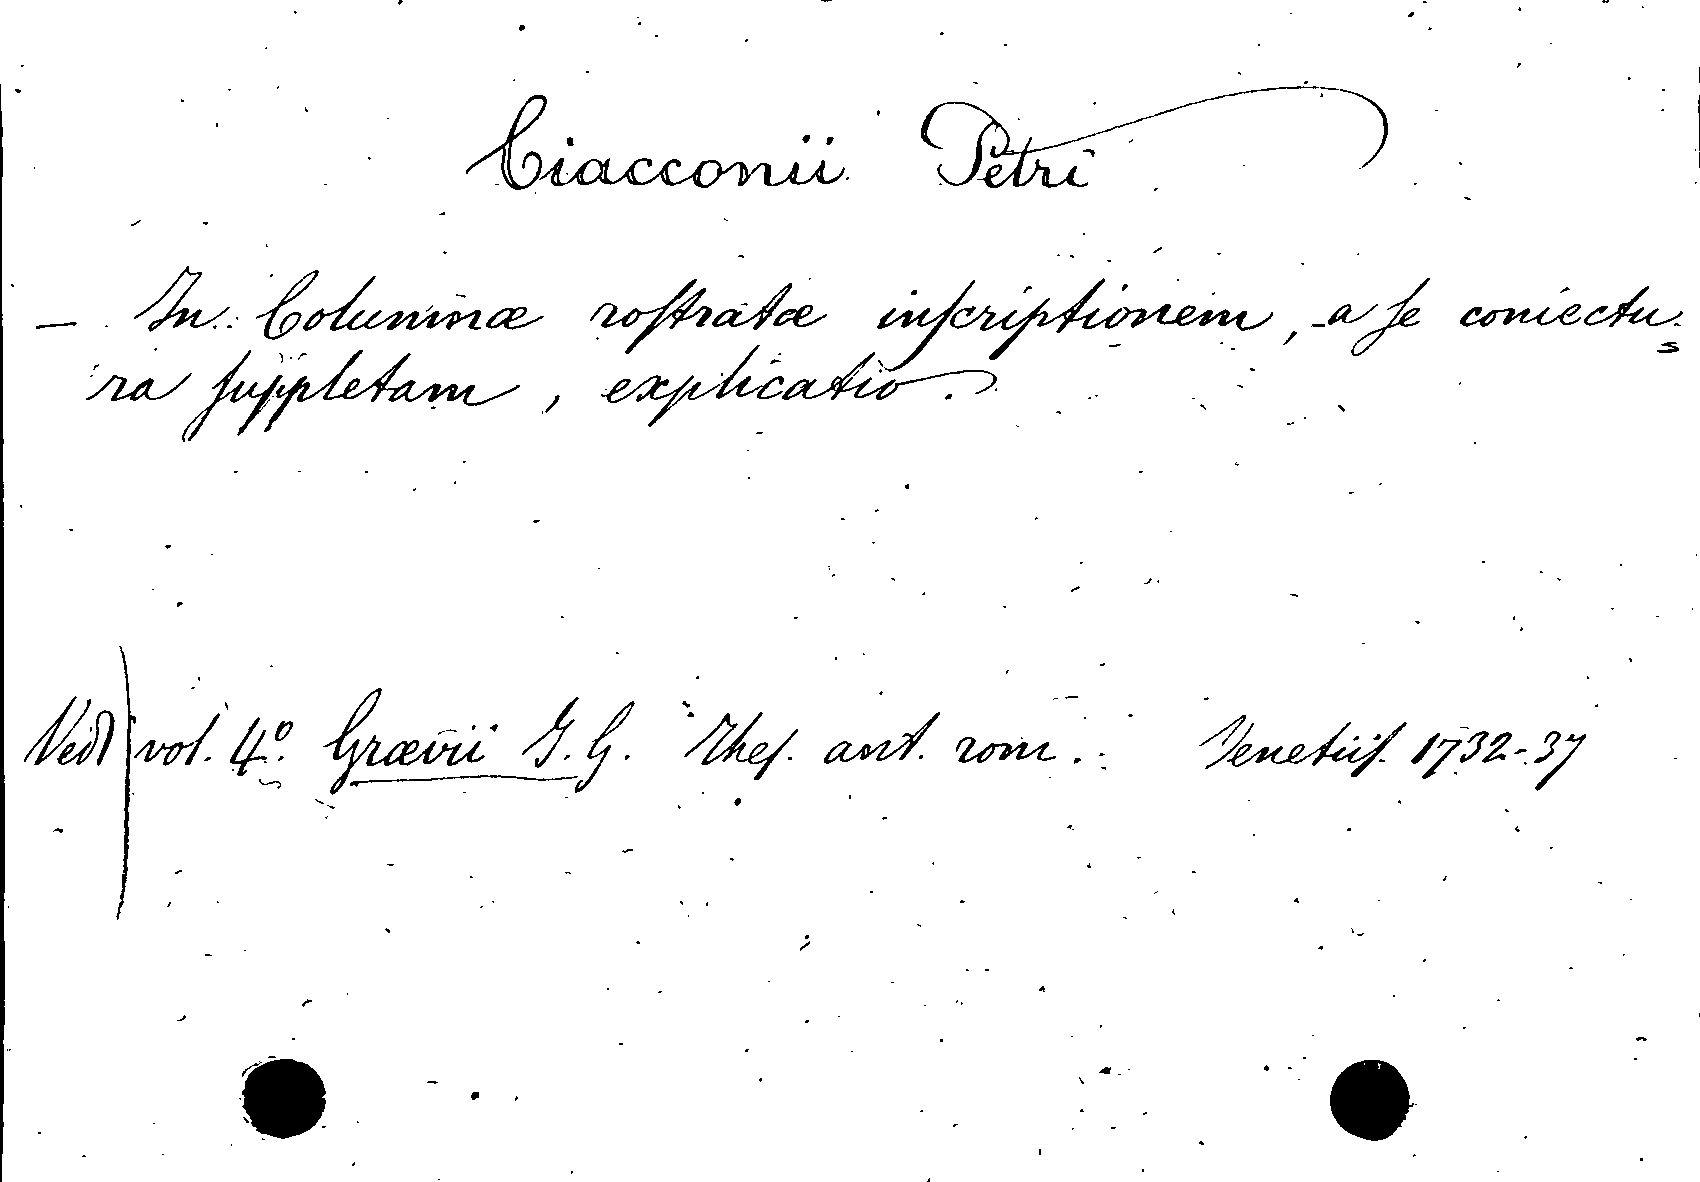 Ciacconii Petri
— In Columnæ roſtratæ inſcriptionem, a ſe coniectu=
ra ſuppletam, explicatio.
Vedi vol. 4º. Grævii J. G. Theſ. ant. rom. Venetiiſ. 1732-37